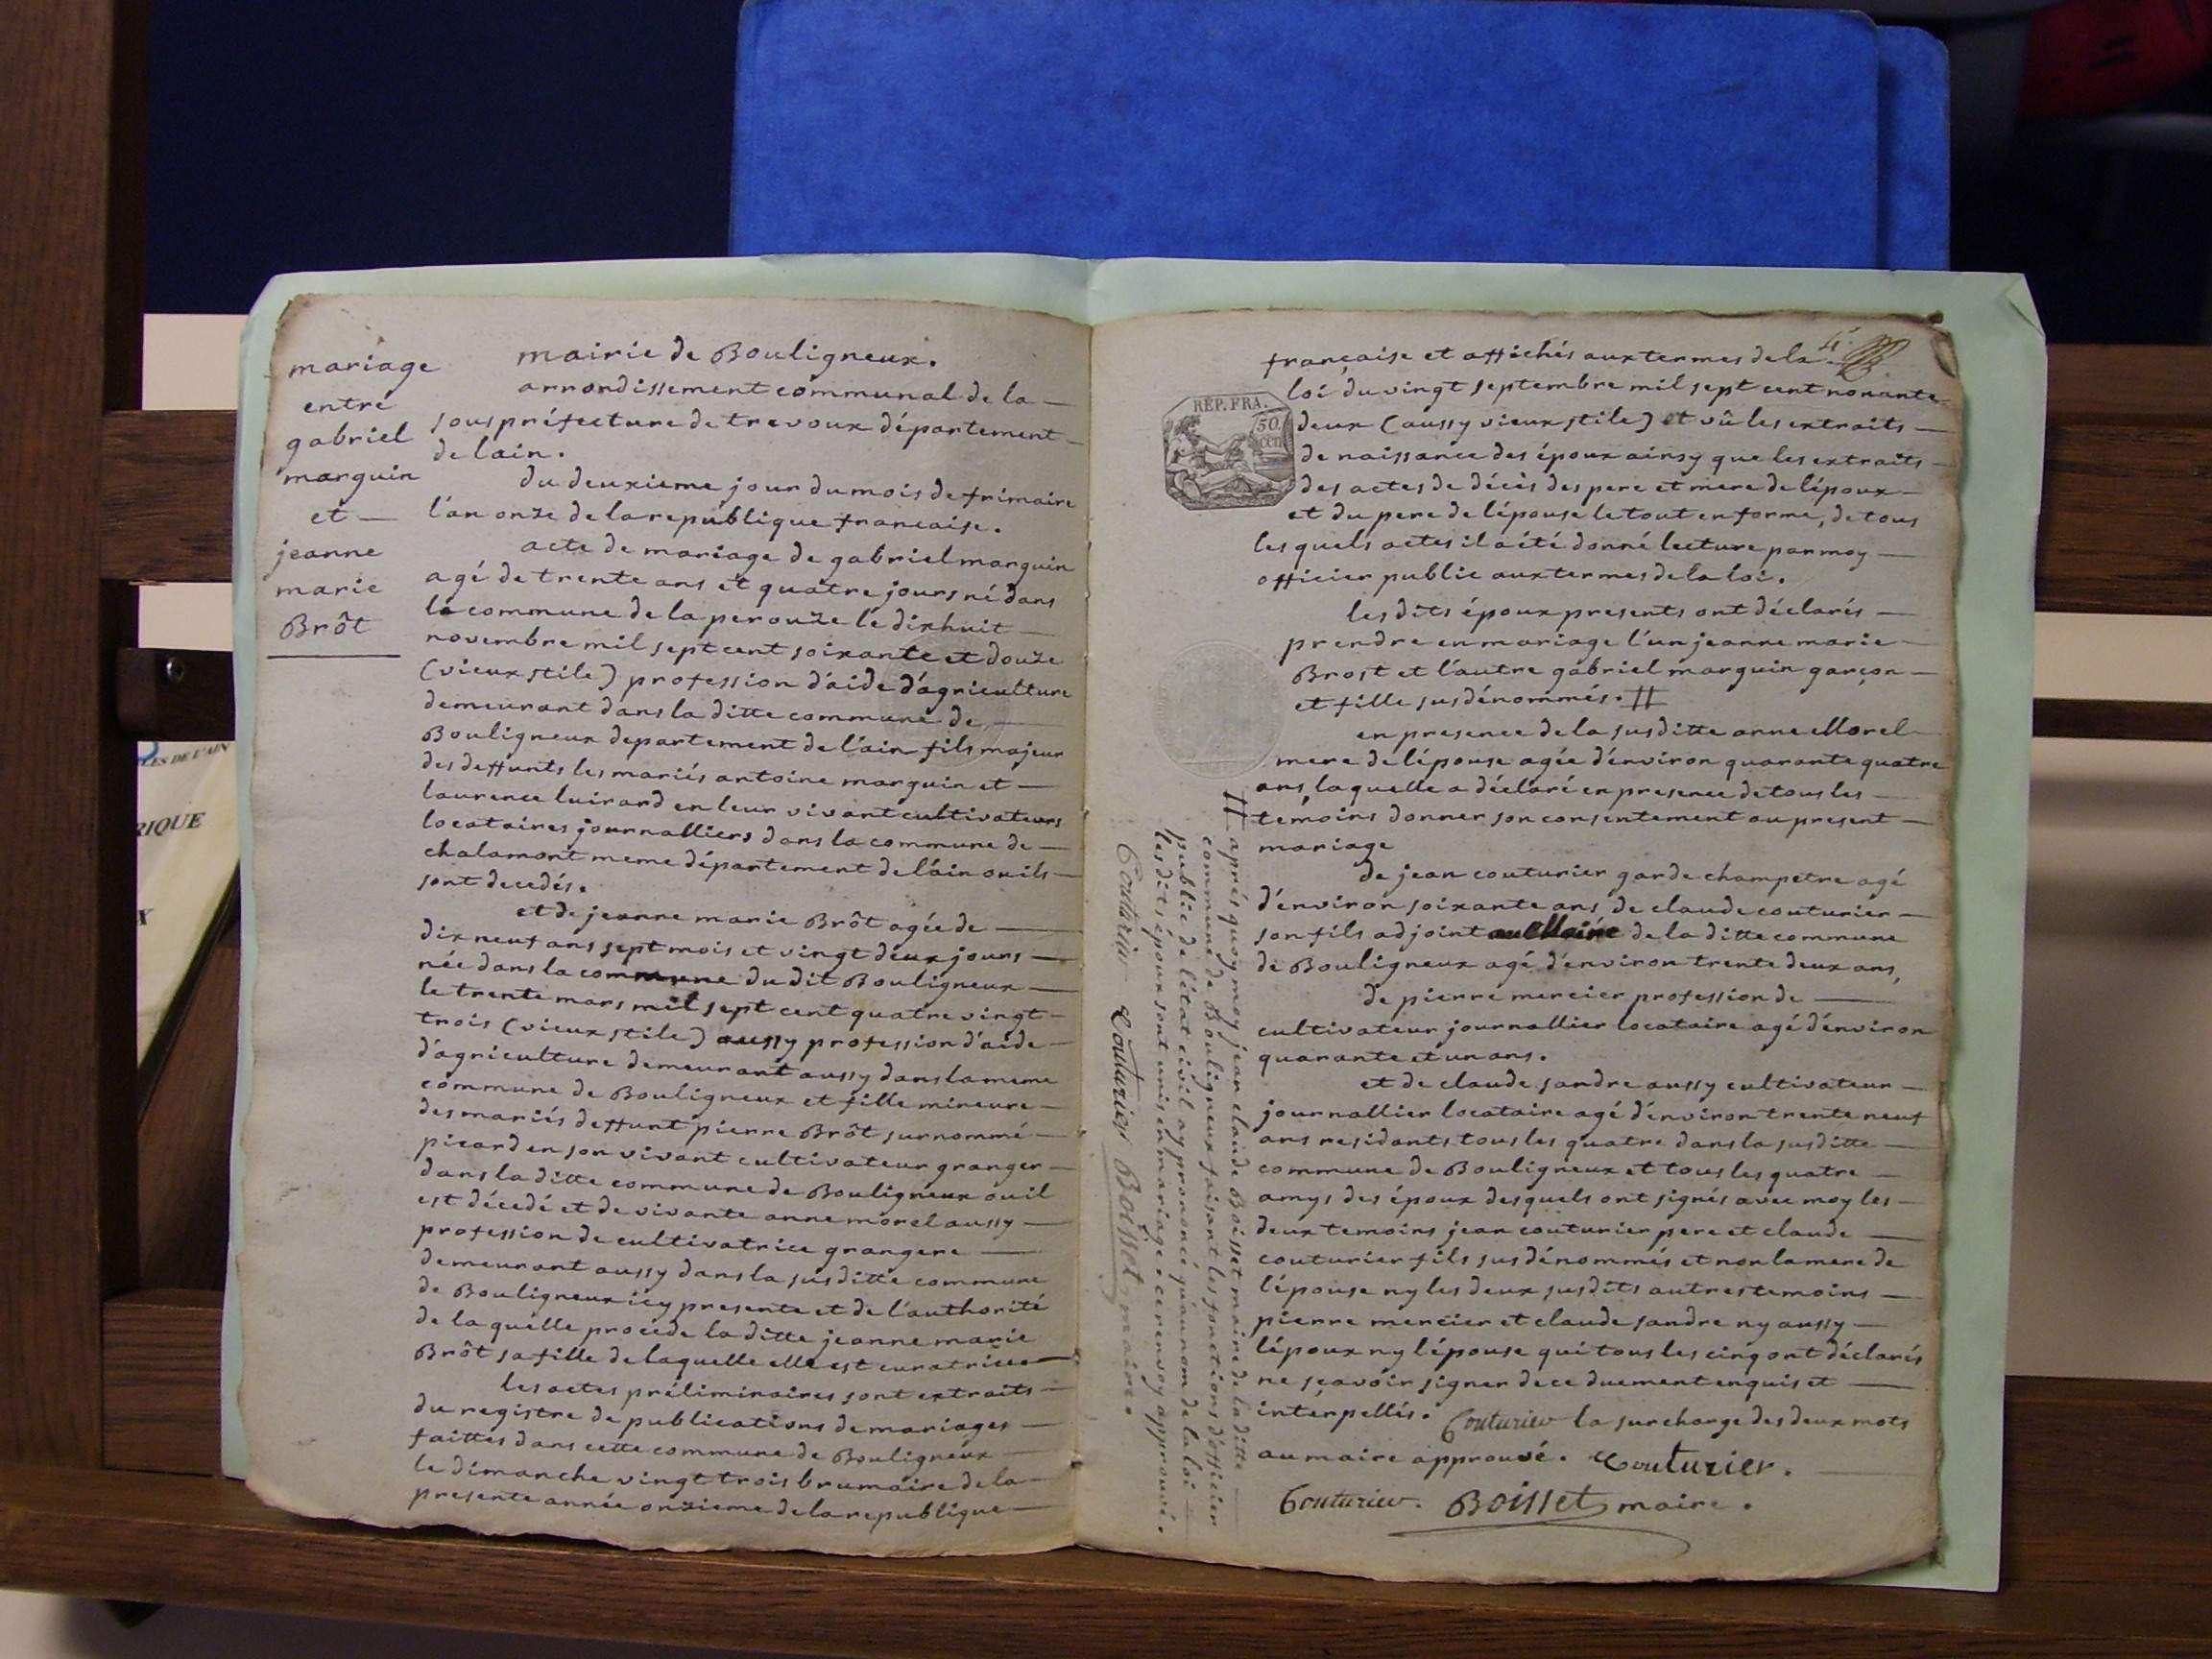 mariage
entré
gabriel
marguin
et —
jeanne
marie
Brôt
mairie de Bouligneux.
arrondissement communal de la —
souspréfecture de trevoux département —
de lain.
du deuxieme jour du mois de frimaire
l'an onze de la republique francaise.
acte de mariage de gabriel marguin
agé de trente ans et quatre jours né dans
la commune de la perouze le dixhuit —
novembre mil sept cent soixante et douze
(vieux stile) profession d'aide d'agriculture
demeurant dans la ditte commune de —
Bouligneux departement de l'ain fils majeur
des deffunts les mariés antoine marguin et —
laurence luirard en leur vivant cultivateurs
locataires journalliers dans la commune de —
chalamont meme département de l'ain ou ils —
sont decedés.
et de jeanne marie Brôt agée de —
dix neuf ans sept mois et vingt deux jours —
née dans la commune du dit Bouligneux —
le trente mars mil sept cent quatre vingt —
trois (vieux stile) aussy profession d'aide —
d'agriculture demeurant aussy dans la meme
commune de Bouligneux et fille mineure —
des mariés deffunt pierre Brôt surnommé —
picard en son vivant cultivateur granger —
dans la ditte commune de Bouligneux ou il
est décedé et de vivante anne morel aussy —
profession de cultivatrice grangere —
demeurant aussy dans la susditte commune
de Bouligneux icy presente et de l'authorité
de laquelle procede la ditte jeanne marie
Brôt sa fille de laquelle elle est curatrice —
les actes préliminaires sont extraits —
du registre de publications de mariages —
faittes dans cette commune de Bouligneux —
le dimanche vingt trois brumaire de la —
presente année onzieme de la republique —
4.
française et affichés aux termes de la
loi du vingt septembre mil sept cent nonante
REP. FRA.
50
cen
deux (aussy vieux stile) et vû les extraits —
de naissance des époux ainsy que les extraits —
des actes de décès des pere et mere de l'époux —
et du pere de l'épouse le tout en forme, de tous
les quels actes il a été donné lecture par moy —
officier public aux termes de la loi.
les dits époux presents ont déclarés —
prendre en mariage l'un jeanne marie —
Brost et l'autre gabriel marguin garçon —
et fille susdénommés. #
en presence de la susditte anne Morel
mere de l'épouse agée d'environ quarante quatre
ans, laquelle a déclaré en presence de tous les —
temoins donner son consentement au present —
mariage
de jean couturier garde champetre agé
d'environ soixante ans, de claude couturier —
son fils adjoint au Maire de la ditte commune
de Bouligneux agé d'environ trente deux ans,
de pierre mercier profession de —
cultivateur journallier locataire agé d'environ
quarante et un ans.
et de claude sandre aussy cultivateur —
journallier locataire agé d'environ trente neuf
ans residants tous les quatre dans la susditte —
commune de Bouligneux et tous les quatre —
amys des époux desquels ont signés avec moy les —
deux temoins jean couturier pere et claude —
couturier fils susdénommés et non la mere de
l'épouse ny les deux susdits autres temoins —
pierre mercier et claude sandre ny aussy —
l'époux ny l'épouse qui tous les cinq ont déclarés
ne sçavoir signer de ce duement enquis et —
interpellés. Couturier la surcharge des deux mots
au maire approuvé. Couturier. —
Couturier. Boisset maire.
# après quoy moy jean claude Boisset maire de la ditte —
commune de Bouligneux faisant les fonctions d'officier
public de l'état civil ay prononcé qu'au nom de la loi —
les dits époux sont unis en mariage ce renvoy approuvé.
Couturier Couturier Boisset maire.
LES DE L'AIN
RIQUE
X